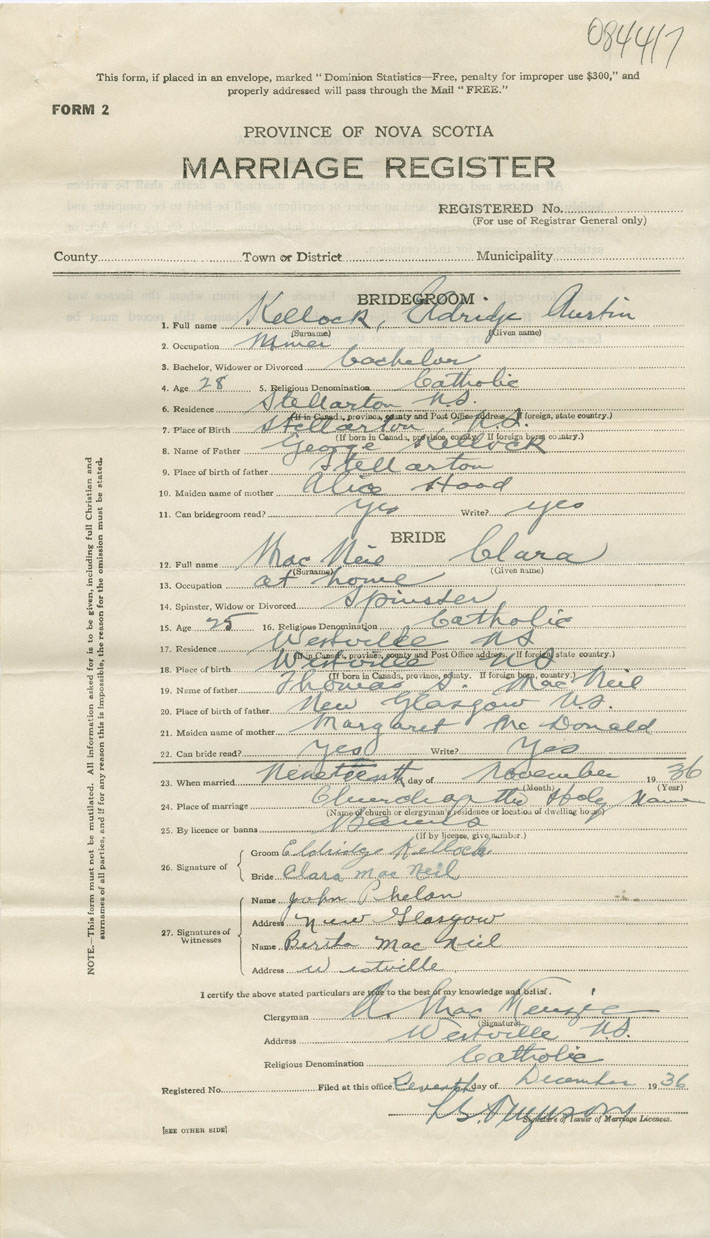 084417
This form, if placed in an envelope, marked "Dominion Statistics—Free, penalty for improper use $300," and
properly addressed will pass through the Mail "FREE."
FORM 2
PROVINCE OF NOVA SCOTIA
MARRIAGE REGISTER
REGISTERED No.
(For use of Registrar General only)
County Town or District Municipality
BRIDEGROOM
1. Full name Kellock, Eldridge Austin
(Surname) (Given name)
2. Occupation Miner
3. Bachelor, Widower or Divorced bachelor
4. Age 28 5. Religious Denomination Catholic
6. Residence Stellarton N.S.
(If in Canada, province, county and Post Office address. If foreign, state country.)
7. Place of Birth Stellarton, N.S.
(If born in Canada, province, county. If foreign born, country.)
8. Name of Father George Kellock
9. Place of birth of father Stellarton
10. Maiden name of mother Alice Hood
11. Can bridegroom read? yes Write? yes
BRIDE
12. Full name Mac Neil Clara
(Surname) (Given name)
13. Occupation at home
14. Spinster, Widow or Divorced Spinster
15. Age 25 16. Religious Denomination Catholic
17. Residence Westville NS
(If in Canada, province, county and Post Office address. If foreign, state country.)
18. Place of birth Westville NS
(If born in Canada, province, county. If foreign born, country.)
19. Name of father Thomas S. Mac Neil
20. Place of birth of father New Glasgow N.S.
21. Maiden name of mother Margaret Mc Donald
22. Can bride read? Yes Write? Yes
23. When married Nineteenth day of November 19 36
(Month) (Year)
24. Place of marriage Church of the Holy Name
(Name of church or clergyman's residence or location of dwelling house)
25. By licence or banns Banns
(If by licence, give number.)
26. Signature of
Groom Eldridge Kellock
Bride Clara Mac Neil
27. Signatures of Witnesses
Name John Phelan
Address New Glasgow
Name Bertha Mac Neil
Address Westville
I certify the above stated particulars are true to the best of my knowledge and belief.
Clergyman Mac Kenzie
(Signature)
Address Westville N.S.
Religious Denomination Catholic
Registered No. Filed at this office Seventh day of December 19 36
Signature of Issuer of Marriage Licences.
[SEE OTHER SIDE]
NOTE.—This form must not be mutilated. All information asked for is to be given, including full Christian and
surnames of all parties, and if for any reason this is impossible, the reason for the omission must be stated.